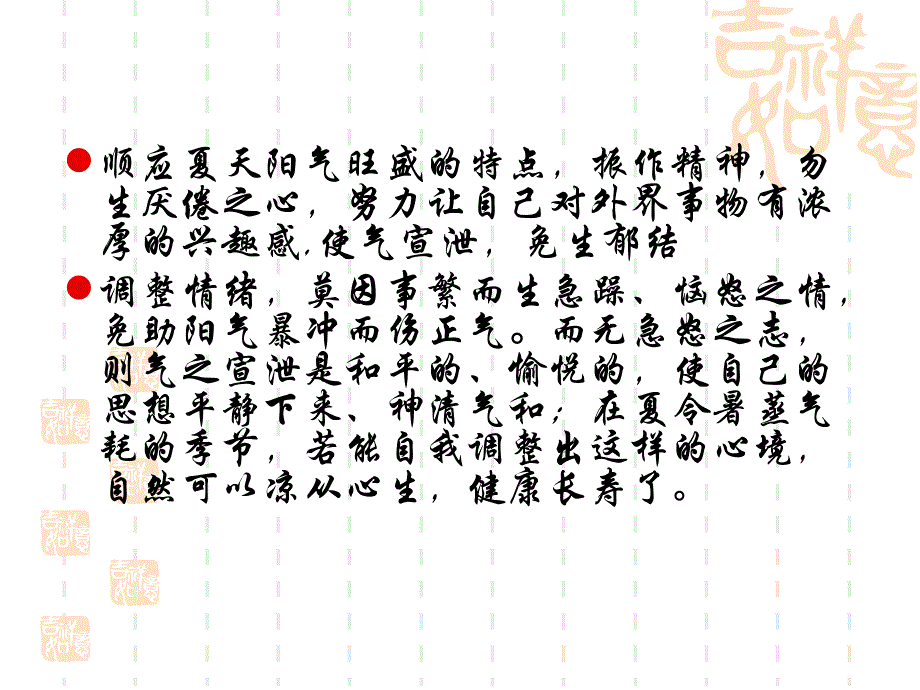 吉祥如意
顺应夏天阳气旺盛的特点，振作精神，勿
生厌倦之心，努力让自己对外界事物有浓
厚的兴趣感,使气宣泄，免生郁结
调整情绪，莫因事繁而生急躁、恼怒之情，
免助阳气暴冲而伤正气。而无急怒之志，
则气之宣泄是和平的、愉悦的，使自己的
思想平静下来、神清气和；在夏令暑蒸气
耗的季节，若能自我调整出这样的心境，
自然可以凉从心生，健康长寿了。
吉祥如意
吉祥如意
吉祥如意
吉祥如意
吉祥如意
吉祥如意